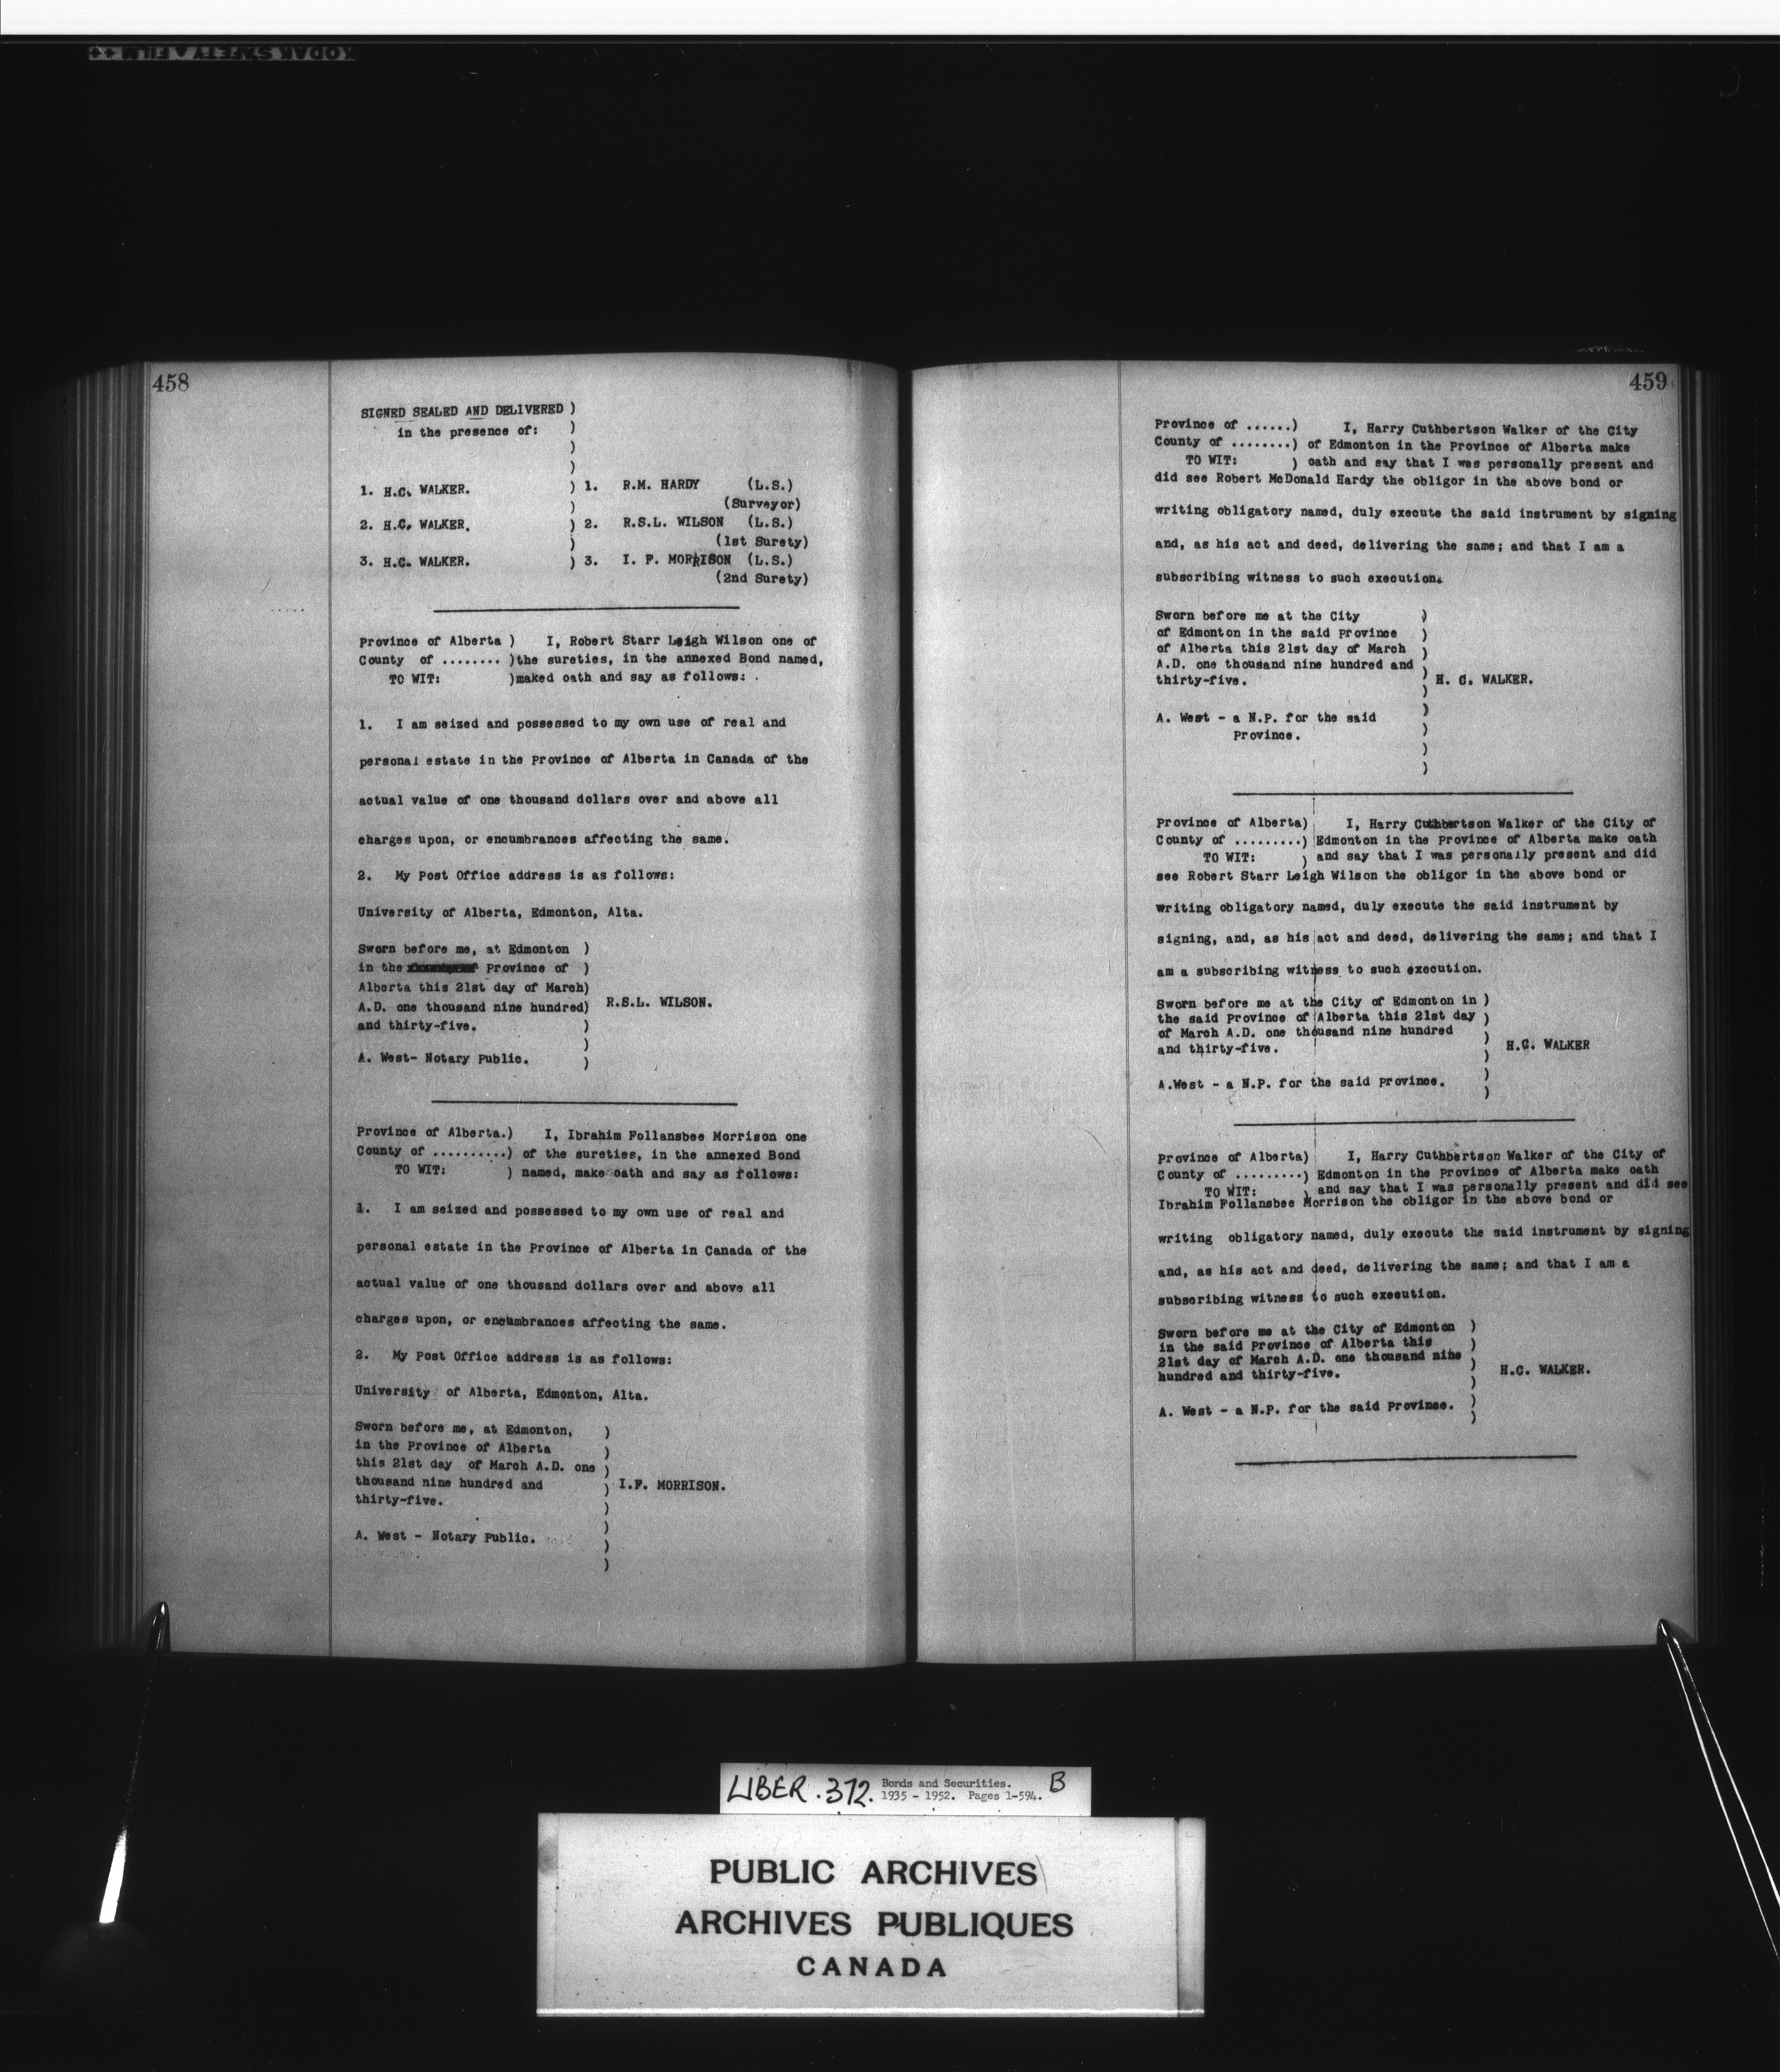 KODAK SAFETY FILM
458
SIGNED SEALED AND DELIVERED )
in the presence of: )
)
)
1. H.C. WALKER. ) 1. R.M. HARDY (L.S.)
) (Surveyor)
2. H.C. WALKER. ) 2. R.S.L. WILSON (L.S.)
) (1st Surety)
3. H.C. WALKER. ) 3. I. F. MORRISON (L.S.)
(2nd Surety)
Province of Alberta ) I, Robert Starr Leigh Wilson one of
County of ........ )the sureties, in the annexed Bond named,
TO WIT: )maked oath and say as follows:
1. I am seized and possessed to my own use of real and
personal estate in the Province of Alberta in Canada of the
actual value of one thousand dollars over and above all
charges upon, or encumbrances affecting the same.
2. My Post Office address is as follows:
University of Alberta, Edmonton, Alta.
Sworn before me, at Edmonton )
in the Province of )
Alberta this 21st day of March)
A.D. one thousand nine hundred) R.S.L. WILSON.
and thirty-five. )
)
A. West- Notary Public. )
Province of Alberta.) I, Ibrahim Follansbee Morrison one
County of ..........) of the sureties, in the annexed Bond
TO WIT: ) named, make oath and say as follows:
1. I am seized and possessed to my own use of real and
personal estate in the Province of Alberta in Canada of the
actual value of one thousand dollars over and above all
charges upon, or encumbrances affecting the same.
2. My Post Office address is as follows:
University of Alberta, Edmonton, Alta.
Sworn before me, at Edmonton, )
in the Province of Alberta )
this 21st day of March A.D. one )
thousand nine hundred and ) I.F. MORRISON.
thirty-five. )
)
A. West - Notary Public. )
)
459
Province of ......) I, Harry Cuthbertson Walker of the City
County of ........) of Edmonton in the Province of Alberta make
TO WIT: ) oath and say that I was personally present and
did see Robert McDonald Hardy the obligor in the above bond or
writing obligatory named, duly execute the said instrument by signing
and, as his act and deed, delivering the same; and that I am a
subscribing witness to such execution.
Sworn before me at the City )
of Edmonton in the said Province )
of Alberta this 21st day of March )
A.D. one thousand nine hundred and )
thirty-five. ) H. C. WALKER.
)
A. West - a N.P. for the said )
Province. )
)
)
Province of Alberta) I, Harry Cuthbertson Walker of the City of
County of .........) Edmonton in the Province of Alberta make oath
TO WIT: ) and say that I was personally present and did
see Robert Starr Leigh Wilson the obligor in the above bond or
writing obligatory named, duly execute the said instrument by
signing, and, as his act and deed, delivering the same; and that I
am a subscribing witness to such execution.
Sworn before me at the City of Edmonton in )
the said Province of Alberta this 21st day )
of March A.D. one thousand nine hundred )
and thirty-five. ) H.C. WALKER
)
A.West - a N.P. for the said Province. )
Province of Alberta) I, Harry Cuthbertson Walker of the City of
County of .........) Edmonton in the Province of Alberta make oath
TO WIT: ) and say that I was personally present and did see
Ibrahim Follansbee Morrison the obligor in the above bond or
writing obligatory named, duly execute the said instrument by signing
and, as his act and deed, delivering the same; and that I am a
subscribing witness to such execution.
Sworn before me at the City of Edmonton )
in the said Province of Alberta this )
21st day of March A.D. one thousand nine )
hundred and thirty-five. ) H.C. WALKER.
)
A. West - a N.P. for the said Province. )
LIBER.372. Bonds and Securities. B
1935 - 1952. Pages 1-594.
PUBLIC ARCHIVES
ARCHIVES PUBLIQUES
CANADA